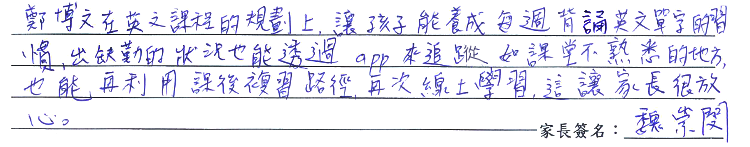 鄭博文在英文課程的規劃上,讓孩子能養成每週背誦英文單字的習
慣,出缺勤的狀況也能透過app來追蹤 如課堂不熟悉的地方,
也能再利用課後複習路徑,再次線上學習,這讓家長很放
心。
家長簽名:魏崇